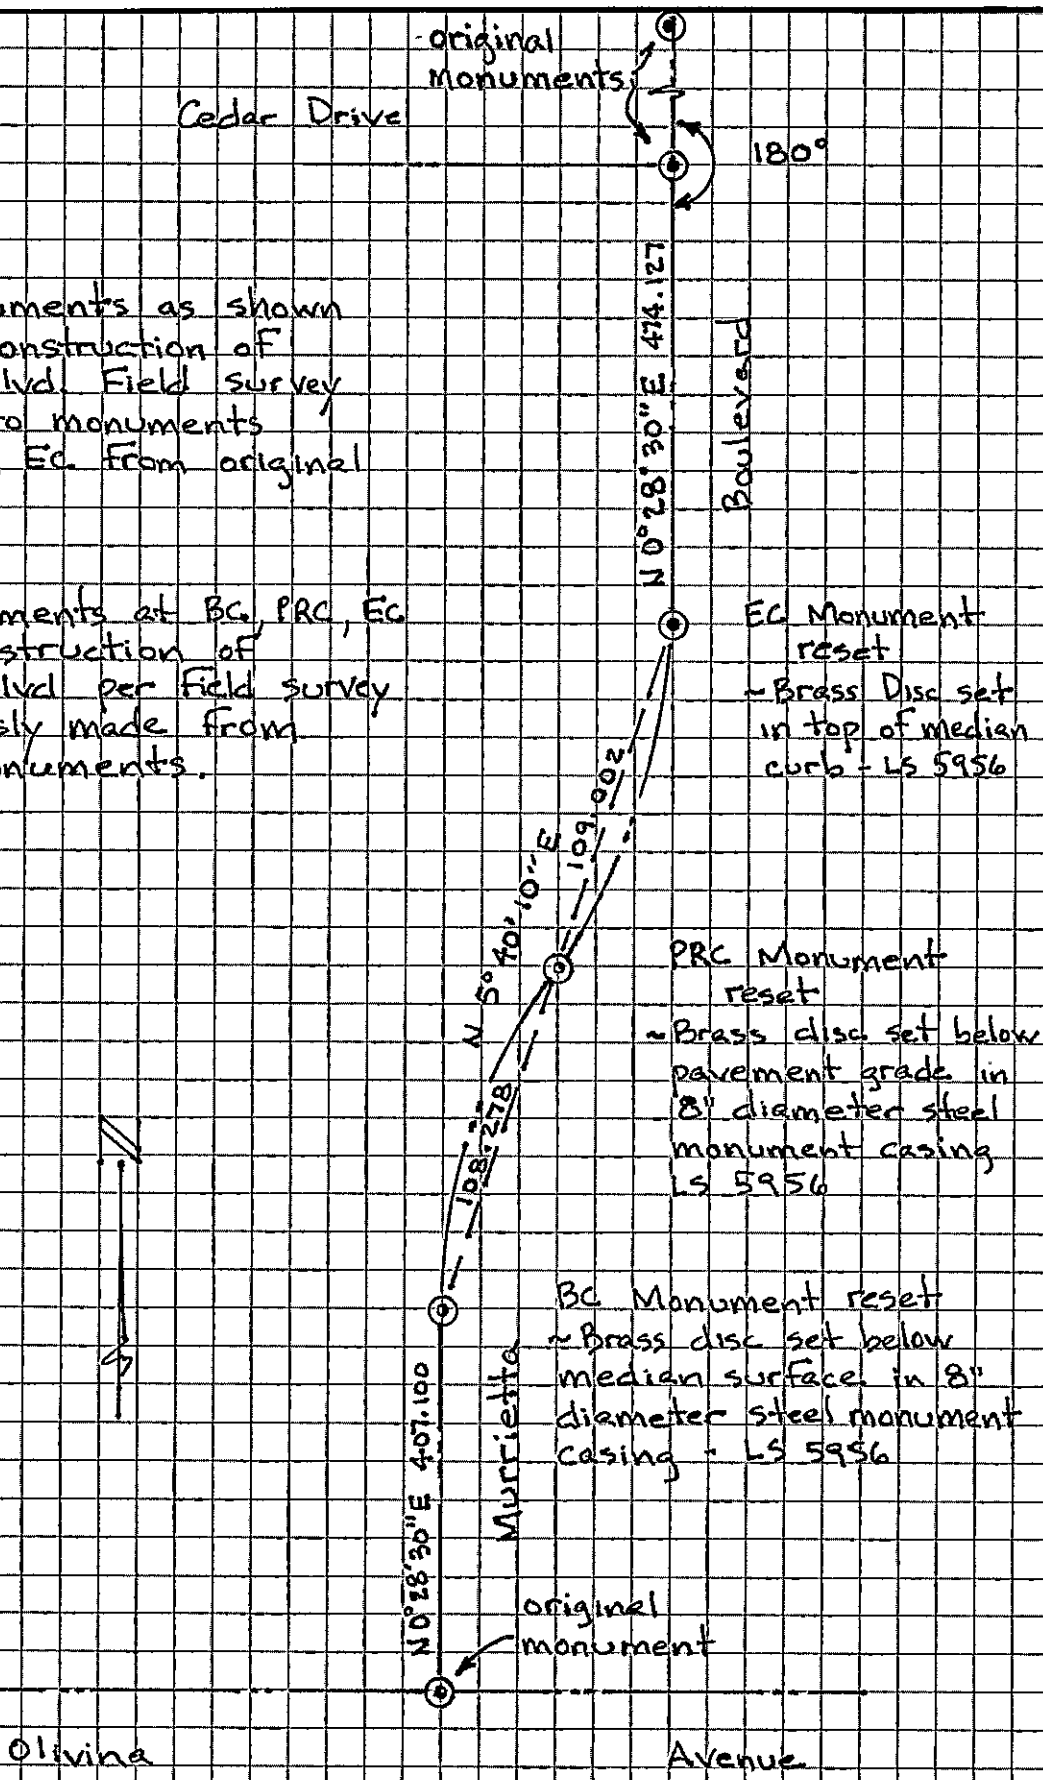 original
monuments
Cedar Drive
180°
N 0°28'30"E 474.127
Boulevard
uments as shown
onstruction of
lvd. Field survey
to monuments
EC from original
ments at BC, PRC, EC
struction of
lvd per field survey
sly made from
numents.
EC Monument
reset
~Brass Disc set
in top of median
curb - LS 5956
N 5°40'10"E
109.002
PRC Monument
reset
~Brass disc set below
pavement grade in
8" diameter steel
monument casing
LS 5956
108.278
BC Monument reset
~Brass disc set below
median surface in 8"
diameter steel monument
casing - LS 5956
N0°28'30"E 407.100
Murrietta
original
monument
Olivina
Avenue